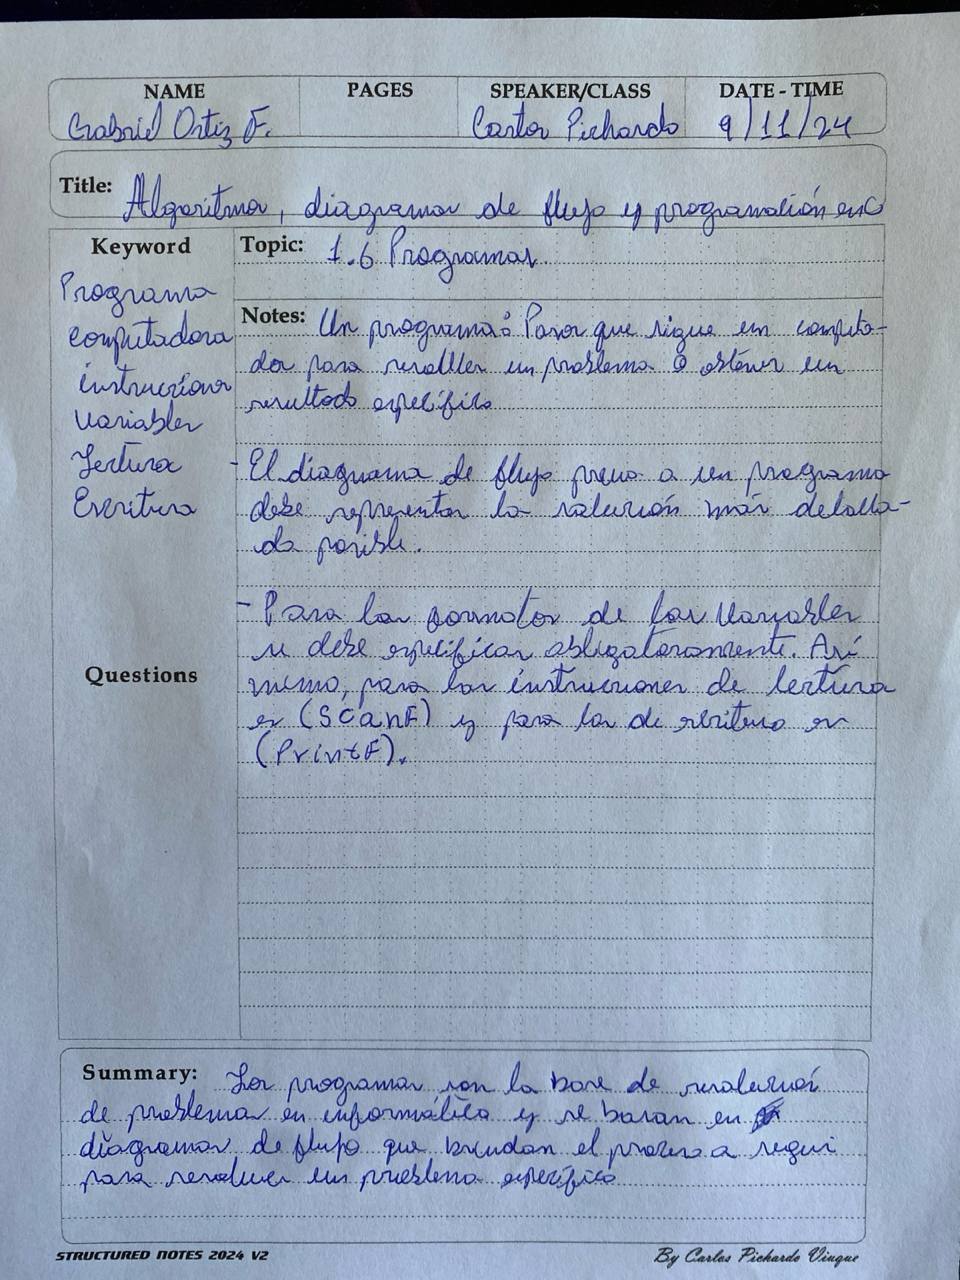 NAME PAGES SPEAKER/CLASS DATE - TIME
Gabriel Ortiz F. Carlos Pichardo 9/11/24
Title: Algoritmos, diagramas de flujo y programación en C
Keyword
Topic: 1.6 Programas
Programa
computadora
instrucciones
Variables
Lectura
Escritura
Questions
Notes: Un programa: Pasos que sigue un computa-
dor para resolver un problema o obtener un
resultado específico
- El diagrama de flujo previo a un programa
debe representar la solución más detalla-
da posible.
- Para los formatos de las Variables
se debe especificar obligatoriamente. Así
mismo, para las instrucciones de lectura
es (ScanF) y para las de escritura es
(PrintF).
Summary: Los programas son la base de resolución
de problemas en informática y se basan en
diagramas de flujo que brindan el proceso a seguir
para resolver un problema específico
STRUCTURED NOTES 2024 V2
By Carlos Pichardo Viuque